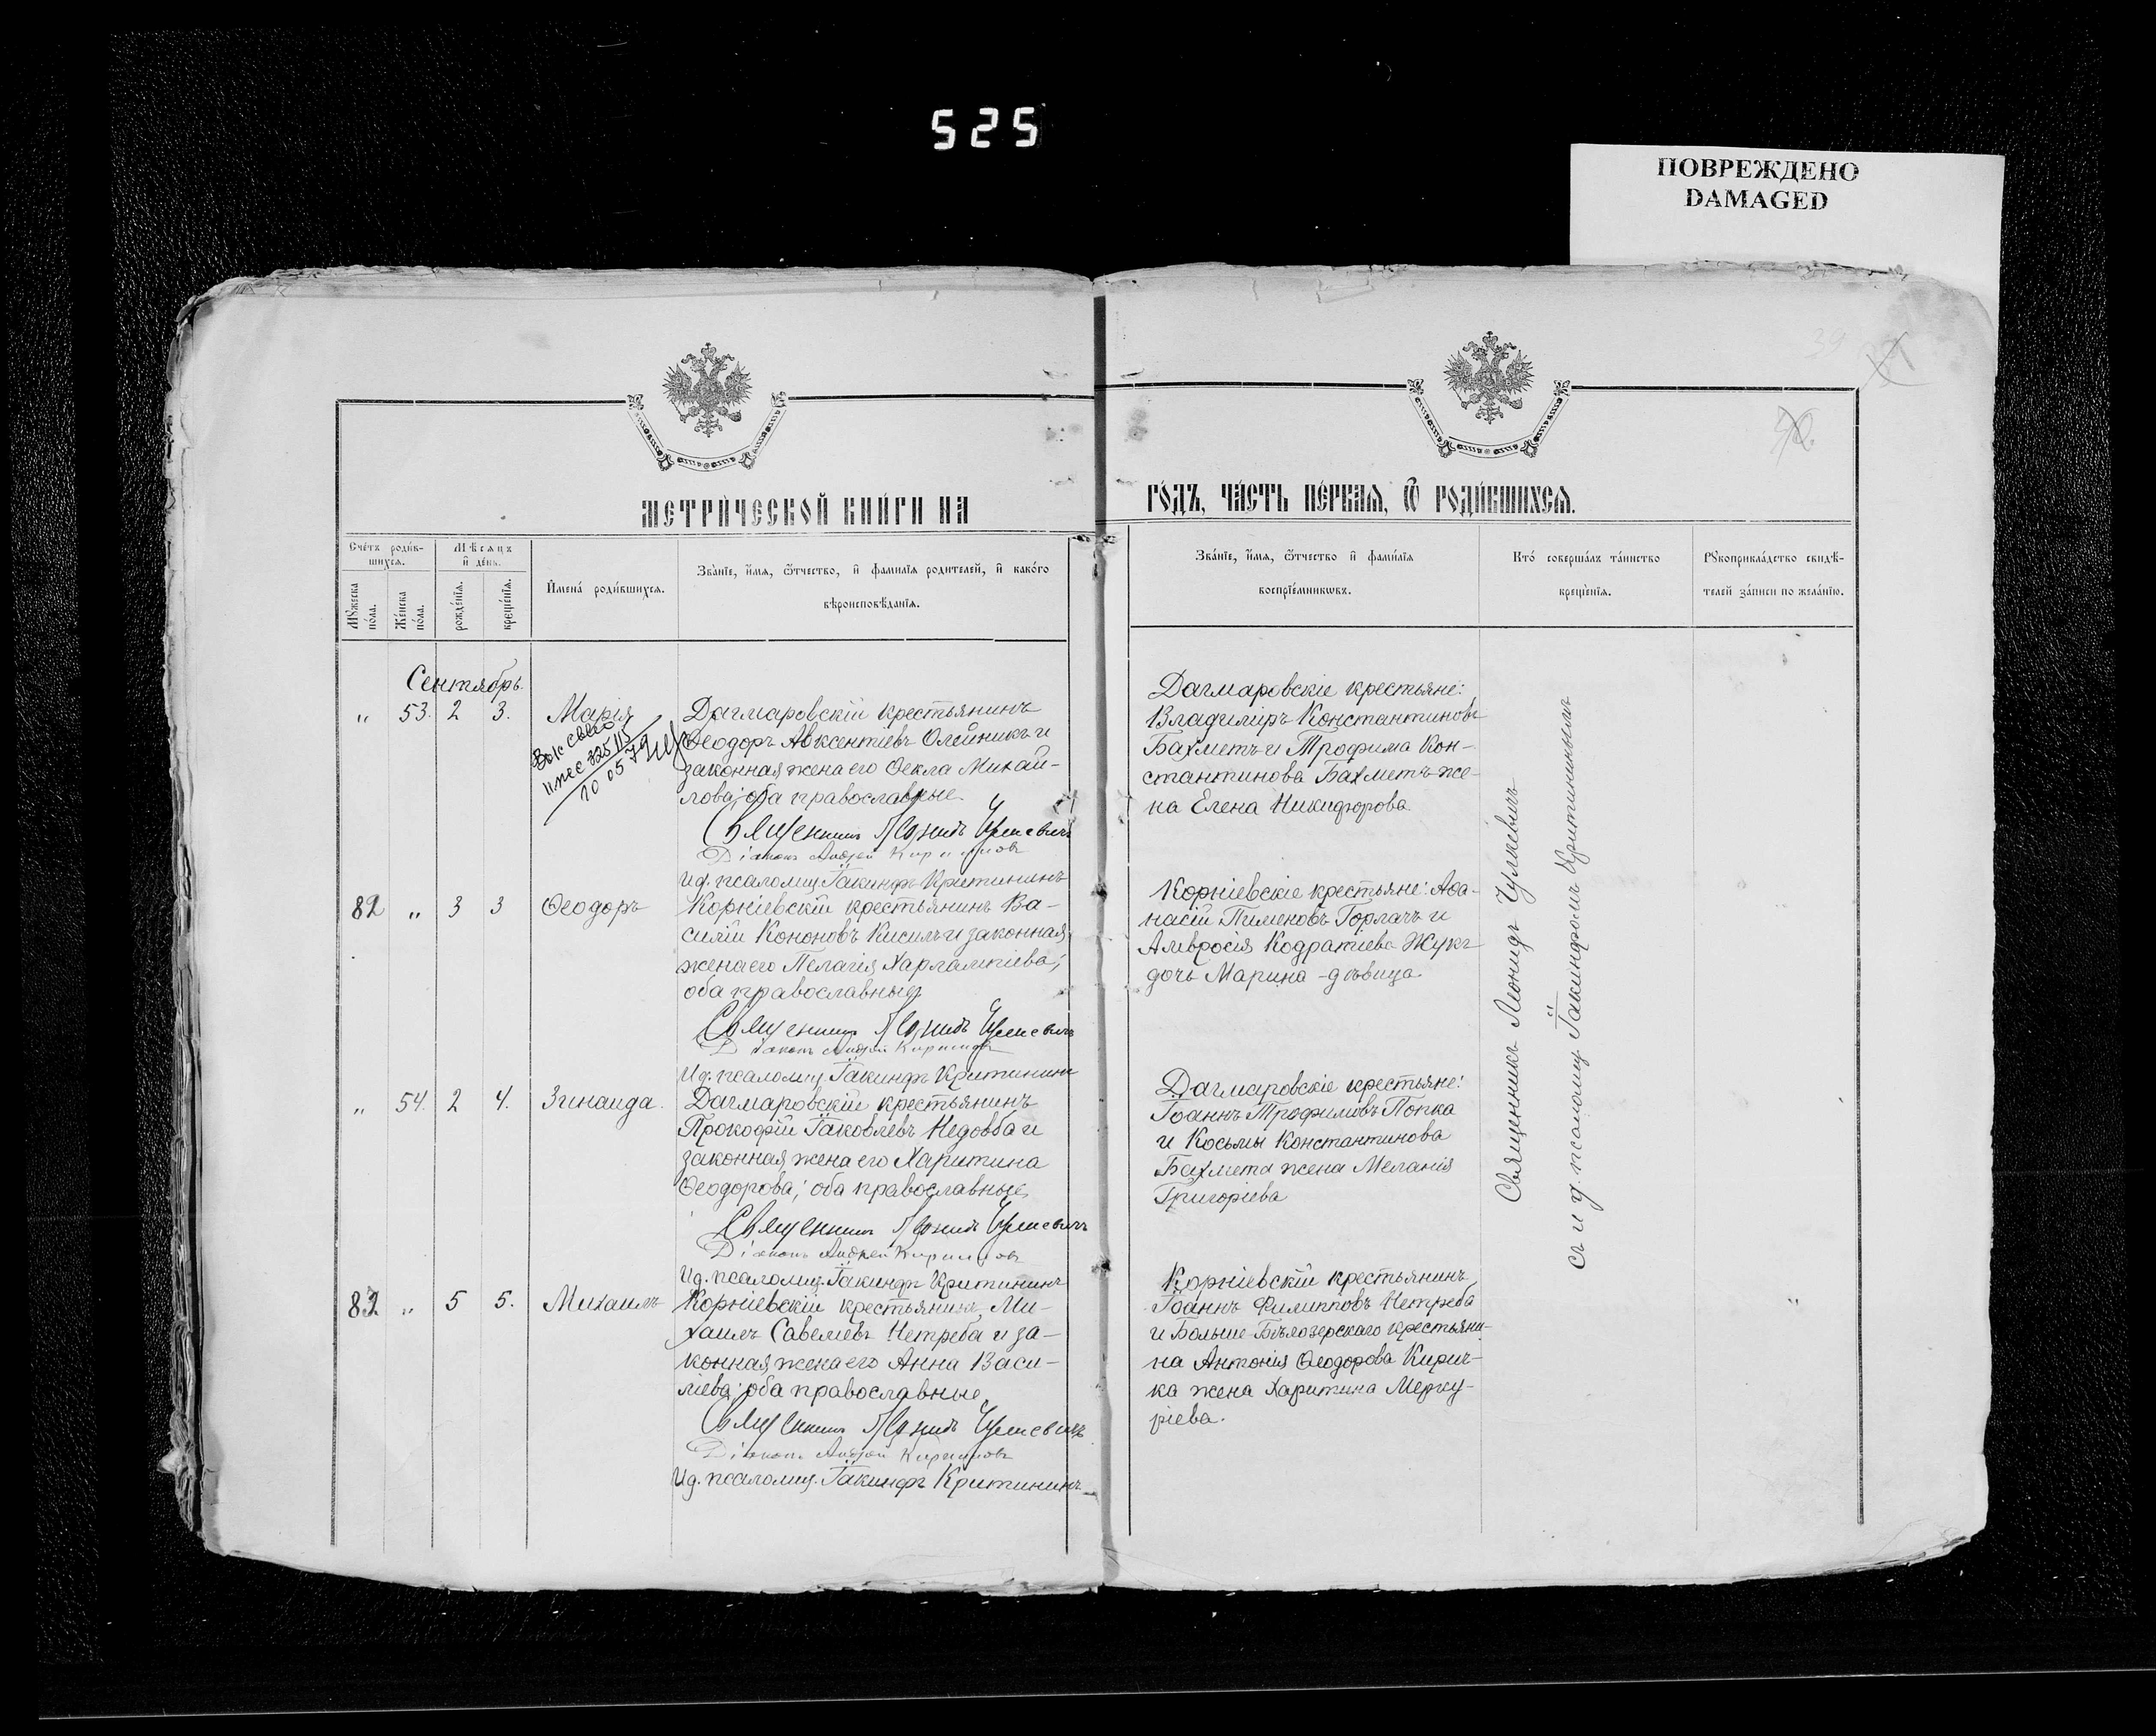 525
ПОВРЕЖДЕНО
DAMAGED
39
МЕТРИ́ЧЕСКОЙ КНИ́ГИ НА
ГО́ДЪ, ЧА́СТЬ ПЕ́РВАЯ, Ѿ РОДИ́ВШИХСЯ.
Сче́тъ роди́в-
шихся.
Мѣ́сяцъ
и де́нь.
Му́жеска
по́ла.
Же́нска
по́ла.
рожде́нїя.
креще́нїя.
Имена́ роди́вшихся.
Зва́нїе, и́мя, ѻ́тчество, и фами́лїя роди́телей, и како́го
вѣроисповѣ́данїя.
Зва́нїе, и́мя, ѻ́тчество и фами́лїя
воспрїе́мникѡвъ.
Кто́ соверша́лъ та́инство
креще́нїя.
Рꙋкоприкла́дство свидѣ́-
телей за́писи по жела́нїю.
Сентябрь.
" 53. 2 3. Марія
Дагмаровскій крестьянинъ
Ѳеодоръ Авксентіевъ Олейникъ и
законная жена его Ѳекла Михай-
лова; оба православные
Священникъ Леонидъ Чулкевичъ
Діаконъ Андрей Кириловъ
Ид. псаломщ. Іакинфъ Критининъ
10 05 79
Дагмаровскіе крестьяне:
Владиміръ Константиновъ
Бахметъ и Трофима Кон-
стантинова Бахметъ же-
на Елена Никифорова
82 " 3 3 Ѳеодоръ
Корніевскій крестьянинъ Ва-
силій Кононовъ Кисиль и законная
жена его Пелагія Харлампіева;
оба православные
Священникъ Леонидъ Чулкевичъ
Діаконъ Андрей Кириловъ
Ид. псаломщ. Іакинфъ Критининъ
Корніевскіе крестьяне: Аѳа-
насій Пименовъ Горлачъ и
Амвросія Кодратіева Жукъ
дочь Марина - дѣвица
" 54. 2 4. Зинаида.
Дагмаровскій крестьянинъ
Прокофій Іаковлевъ Недовба и
законная жена его Харитина
Ѳеодорова; оба православные
Священникъ Леонидъ Чулкевичъ
Діаконъ Андрей Кириловъ
Ид. псаломщ. Іакинфъ Критининъ
Дагмаровскіе крестьяне:
Іоаннъ Трофимовъ Попка
и Косьмы Константинова
Бахмета жена Меланія
Григоріева
" 5 5. Михаилъ
Корніевскій крестьянинъ Ми-
хаилъ Савеліевъ Нетреба и за-
конная жена его Анна Васи-
ліева; оба православные
Священникъ Леонидъ Чулкевичъ
Діаконъ Андрей Кириловъ
Ид. псаломщ. Іакинфъ Критининъ
Корніевскій крестьянинъ
Іоаннъ Филипповъ Нетреба
и Больше-Бѣлозерскаго крестьяни-
на Антонія Ѳеодорова Кирич-
ка жена Харитина Мерку-
ріева.
Священникъ Леонидъ Чулкевичъ
съ и д. псаломщ. Іакинфомъ Критининымъ